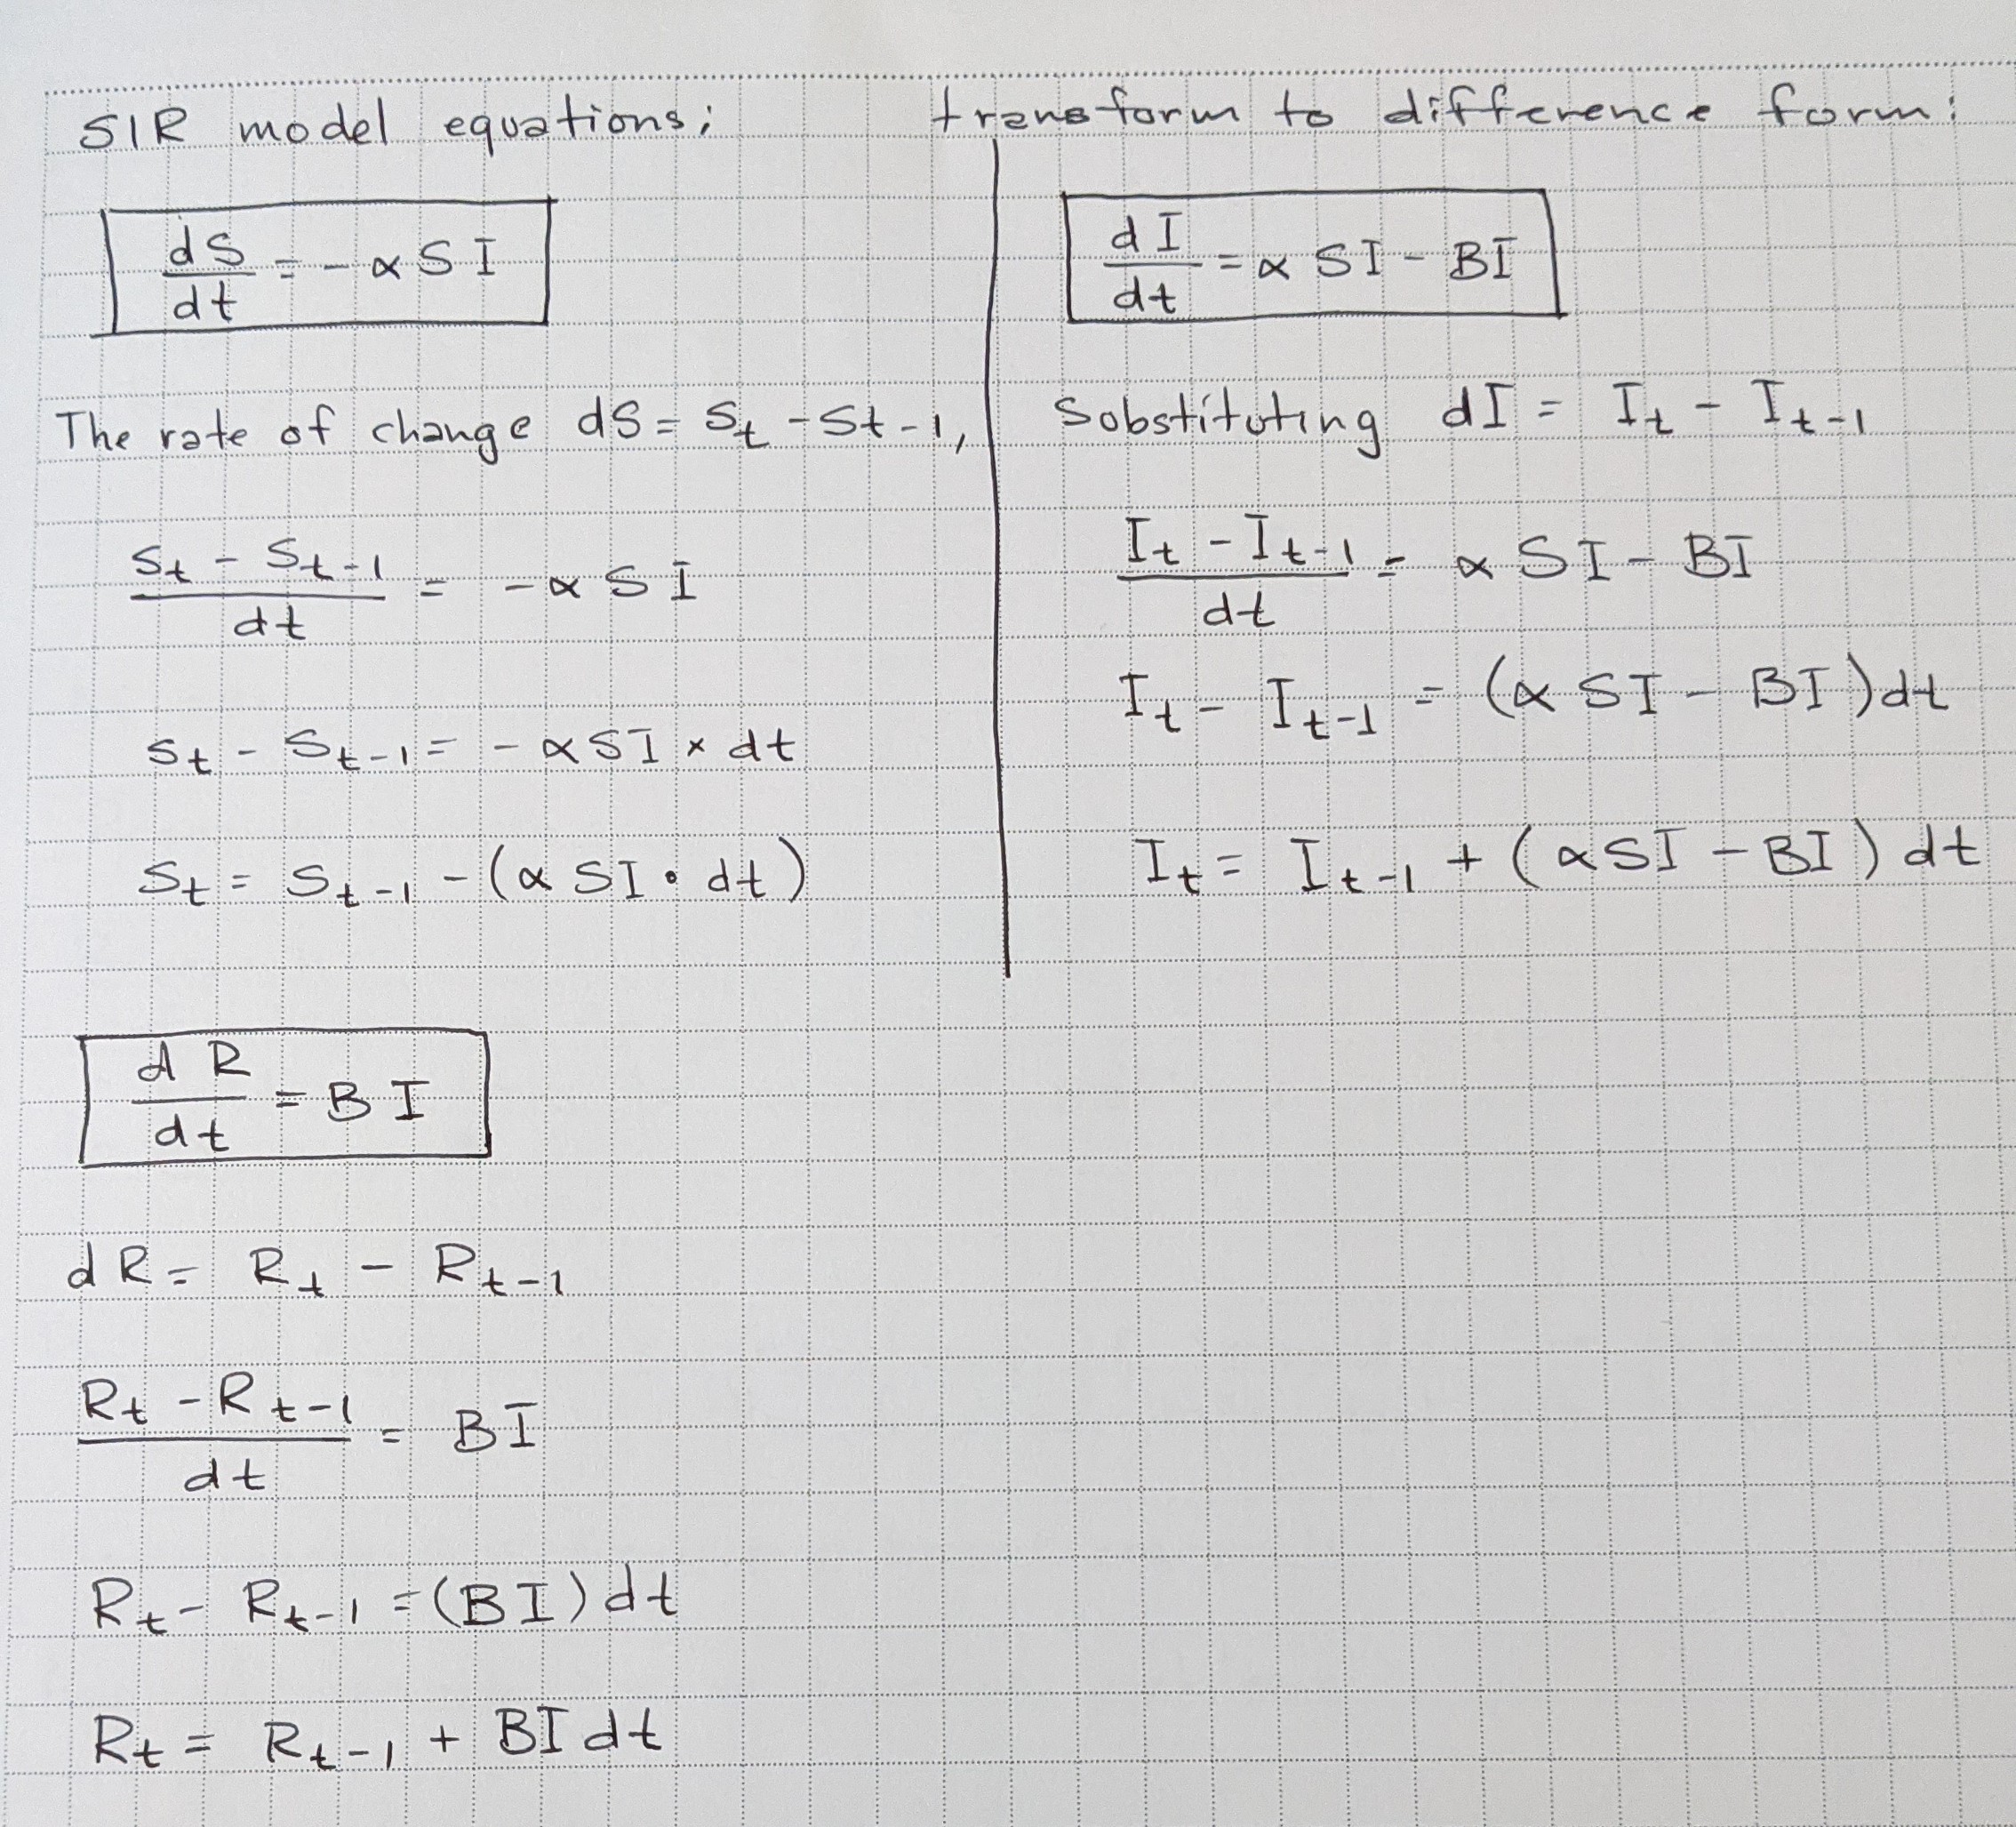 SIR model equations;
transform to difference form:
dS/dt = - α S I
The rate of change dS = St - St-1,
(St - St-1)/dt = - α S I
St - St-1 = - α S I × dt
St = St-1 - (α S I • dt)
dI/dt = α SI - BI
Sobstituting dI = It - It-1
(It - It-1)/dt = α SI - BI
It - It-1 = (α SI - BI) dt
It = It-1 + (α SI - BI) dt
dR/dt = B I
dR = Rt - Rt-1
(Rt - Rt-1)/dt = BI
Rt - Rt-1 = (BI) dt
Rt = Rt-1 + BI dt